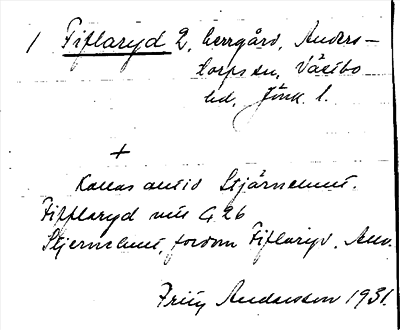 1 Fiflaryd 2, herrgård, Anders-
torps sn, Västbo
hd, Jönk. l.
+
Kallas alltid Stjärnehult.
Fifflaryd
Stjernehult, fordom Fiflaryd.
Fritz Andersson 1931.